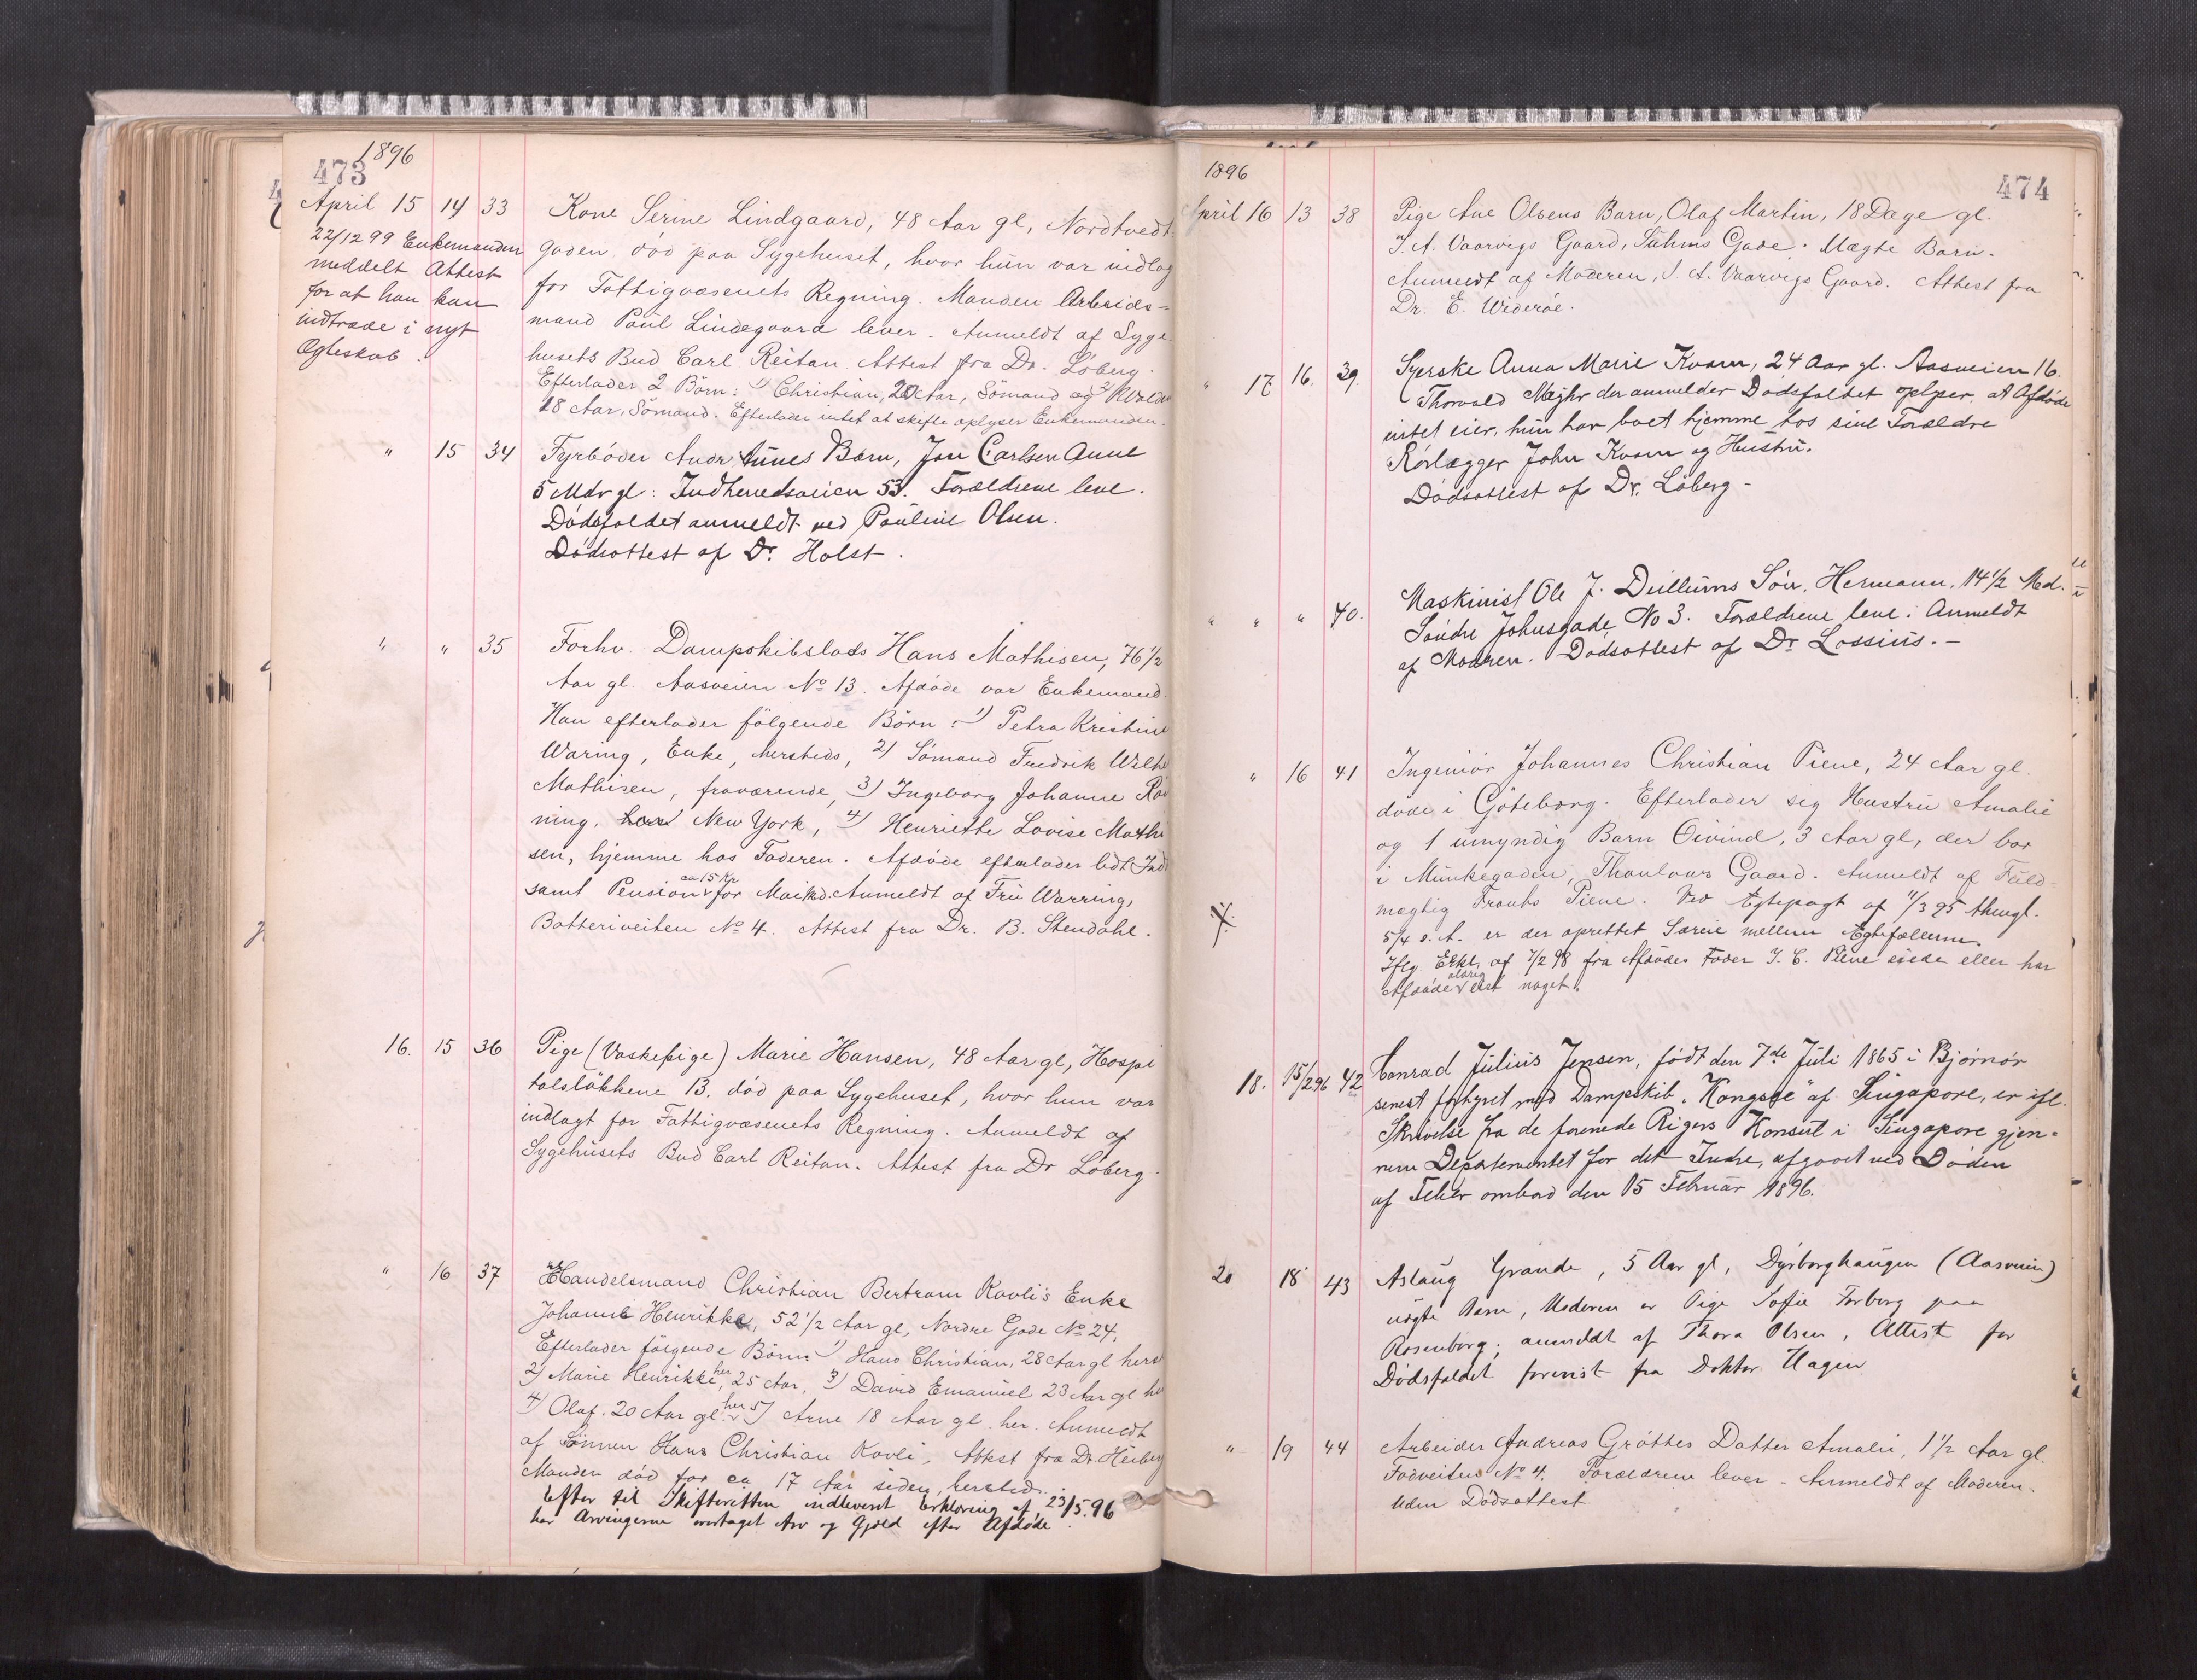 1896
473
April 15 14 33 Kone Serine Lindgaard, 48 Aar gl, Nordtvedt
gaden død paa Sygehuset, hvor hun var indlag
for Fattigvæsenets Regning. Manden Arbeids=
mand Paul Lindegaard lever. Anmeldt af Syge
husets Bud Carl Reitan. Attest fra Dr. Löberg.
Efterlader 2 Börn: 1) Christian, 20 Aar, Sömand og 2)
18 Aar, Sömand. Efterlader intet at skifte oplyser Enkemanden.
22/12 99 Enkemanden
meddelt Attest
for at han kan
indtræde i nyt
Ægteskab.
" 15 34 Fyrböder Andr Aunes Barn, Jon Carlsen Aune
5 Mdr gl: Indherredsveien 53. Forældrene leve.
Dödsfaldet anmeldt ved Pauline Olsen.
Dödsattest af Dr. Holst.
" " 35 Forhv. Dampskibslods Hans Mathisen, 76 1/2
Aar gl. Aasveien No 13. Afdöde var Enkemand.
Han efterlader fölgende Börn: 1) Petra Kristine
Waring, Enke, hersteds, 2) Sömand Fredrik Wilhe
Mathisen, fraværende, 3) Ingeborg Johanne Rö
ning, New York, 4) Henriette Lovise Mathi
sen, hjemme hos Faderen. Afdöde efterlader lidt Ind
samt Pension ca 15 Kr for Maaned. Anmeldt af Fru Warring,
Batteriveiten No 4. Attest fra Dr. B. Stendahl.
16. 15 36 Pige (Vaskepige) Marie Hansen, 48 Aar gl, Hospi
talslökkene 13. död paa Sygehuset, hvor hun var
indlagt for Fattigvæsenets Regning. Anmeldt af
Sygehusets Bud Carl Reitan. Attest fra Dr Löberg.
" 16 37 Handelsmand Christian Bertram Kavli's Enke
Johanne Henrikke, 52 1/2 Aar gl, Nordre Gade No 24.
Efterlader fölgende Börn: 1) Hans Christian, 28 Aar gl hers
2) Marie Henrikke, her 25 Aar, 3) David Emanuel 23 Aar gl he
4) Olaf. 20 Aar gl. her 5) Arne 18 Aar gl. her. Anmeldt
af Sönnen Hans Christian Kavli. Attest fra Dr. Heiberg
Manden död for ca 17 Aar siden, hersteds.
Efter til Skifteretten indleveret Erklæring af 23/5.96
har Arvingerne overtaget Arv og Gjæld efter Afdöde.
1896
474
April 16 13 38 Pige Ane Olsens Barn, Olaf Martin, 18 Dage gl.
I. A. Vaarvigs Gaard, Suhms Gade. Uægte Barn.
Anmeldt af Moderen, I. A. Vaarvigs Gaard. Attest fra
Dr. E. Wideröe.
" 17 16. 39. Syerske Anna Marie Kvam, 24 Aar gl. Aasveien 16.
Thorvald der anmelder Dödsfaldet oplyser, at Afdöde
intet eier, hun har boet hjemme hos sine Forældre
Rörlægger John Kvam og Hustru.
Dödsattest af Dr. Löberg -
" " " 40. Maskinist Ole J. Duillums Sön, Hermann, 14 1/2 Md.
Söndre Johnsgade No 3. Forældrene leve. Anmeldt
af Moderen. Dödsattest af Dr Lossius. -
" 16 41 Ingeniör Johannes Christian Piene, 24 Aar gl.
döde i Göteborg. Efterlader sig Hustru Amalie
og 1 umyndig Barn Öivind, 3 Aar gl, der bor
i Munkegaden, Thaulows Gaard. Anmeldt af Fuld=
mægtig Fraubs Piene. Ved Egtepagt af 11/3 95 thingl.
5/4 s. A. er der oprettet Særeie mellem Ægtefællerne.
Iflg. Erkl. af 7/2 98 fra Afdödes Fader I. C. Piene eiede eller har
Afdöde aldrig eiet noget.
18. 15/2 96 42 Conrad Julius Jensen, födt den 7de Juli 1865 i Björnör
senest forhyret med Dampskib "Kongsee" af Singapore, er ifl.
Skrivelse fra de forenede Rigers Konsul i Singapore gjen=
nem Departementet for det Indre, afgaaet ved Döden
af Feber ombord den 15 Februar 1896.
20 18 43 Aslaug Grande, 5 Aar gl, Dyrborghaugen (Aasveien)
uægte Barn, Moderen er Pige Sofie Forberg paa
Rosenborg; anmeldt af Thora Olsen, Attest for
Dödsfaldet forevist fra Doktor Hagen
" 19 44 Arbeider Andreas Gröttes Datter Amalie, 1 1/2 Aar gl.
Fadveiten No 4. Forældrene lever - Anmeldt af Moderen.
Uden Dödsattest